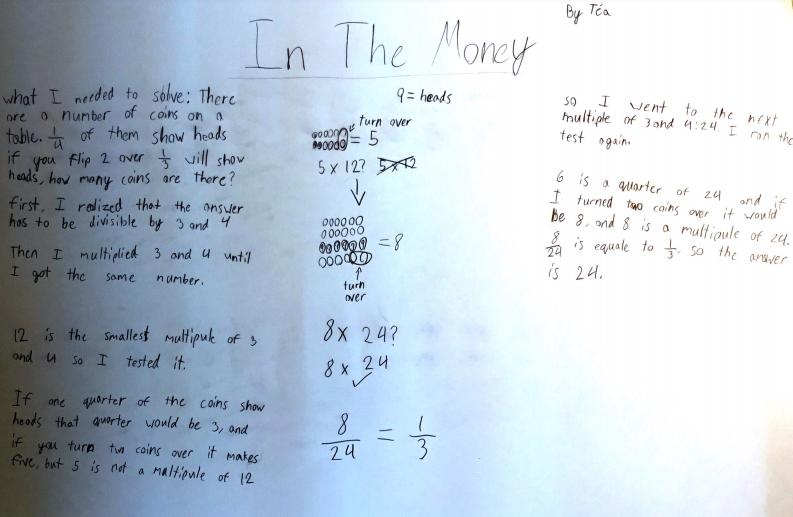 By Téa
In The Money
what I needed to solve: There
are a number of coins on a
table. 1/4 of them show heads
if you flip 2 over 1/3 will show
heads, how many coins are there?
first, I realized that the answer
has to be divisible by 3 and 4
Then I multiplied 3 and 4 until
I got the same number.
12 is the smallest multipule of 3
and 4 so I tested it.
If one quarter of the coins show
heads that quarter would be 3, and
if you turn two coins over it makes
five, but 5 is not a multipule of 12
= heads
turn over
= 5
5 x 12? 5 x 12
= 8
turn
over
8 x 24?
8 x 24
8/24 = 1/3
so I went to the next
multiple of 3 and 4: 24. I ran the
test again.
6 is a quarter of 24 and if
I turned two coins over it would
be 8, and 8 is a multipule of 24.
8/24 is equale to 1/3. so the answer
is 24.